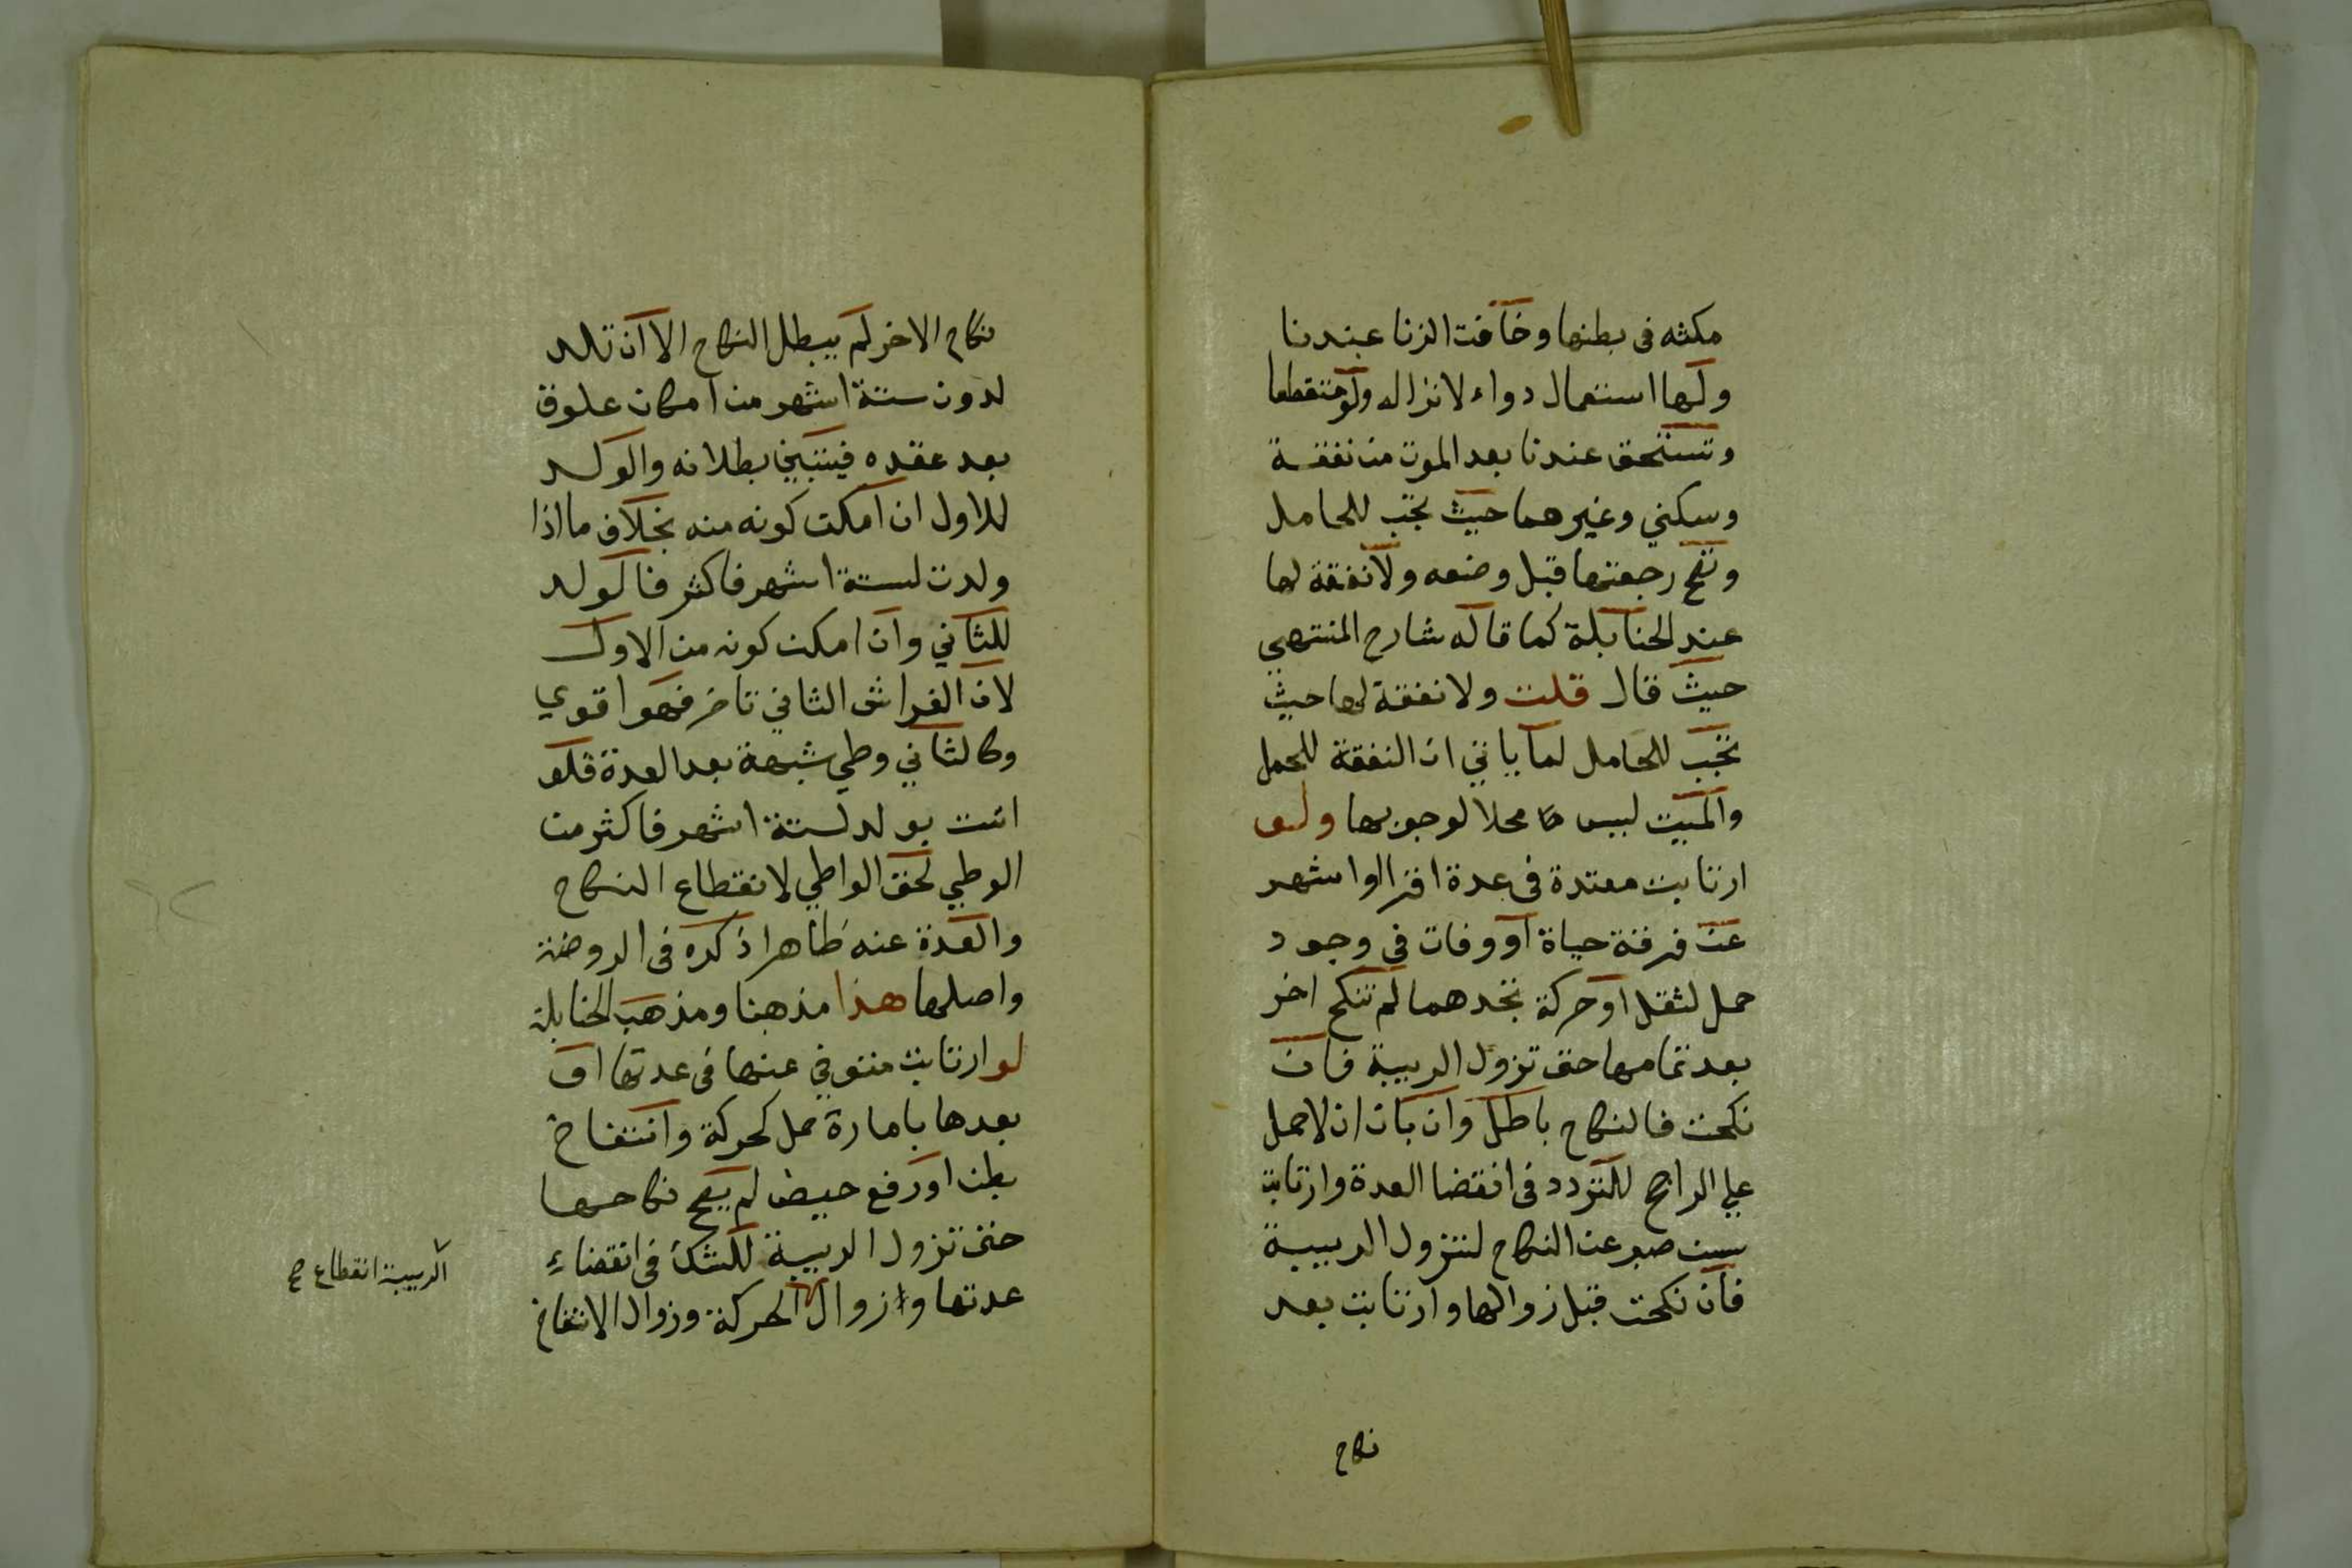 مكثه فى بطنها وخافت الزنا عندنا
ولها استعمال دواء لانزاله ولو متقطعا
وتستحق عندنا بعد الموت من نفقة
وسكني وغيرهما حيث تجب للحامل
وتصح رجعتها قبل وضعه ولا نفقة لها
عند الحنابلة كما قاله شارح المنتهي
حيث قال قلت ولا نفقة لها حيث
تجب للحامل لما ياتي ان النفقة للحمل
والميت ليس محلا لوجوبها ولو
ارتابت معتدة فى عدة اقرا او اشهر
عن فرقة حياة او وفات في وجود
حمل لثقل او حركة تجدهما لم تنكح اخر
بعد تمامها حتى تزول الريبة فان
نكحت فالنكاح باطل وان بان ان لا حمل
علي الراجح للتردد فى انقضا العدة وارتابت
سن صبر عن النكاح لتزول الريبة
فان نكحت قبل زوالها وارتابت بعد
نكاح
نكاح الاخر لم يبطل النكاح الا ان تلد
لدون ستة اشهر من امكان علوق
بعد عقده فيتبين بطلانه والولد
للاول ان امكن كونه منه بخلاف ما اذا
ولدت لستة اشهر فاكثر فالولد
للثاني وان امكن كونه من الاول
لان الفراش الثاني تاخر فهو اقوي
وكالثاني وطي شبهة بعد العدة فلو
اتت بولد لستة اشهر فاكثر من
الوطي لحق الواطي لانقطاع النكاح
والعدة عنه ظاهرا ذكره فى الروضة
واصلها هذا مذهبنا ومذهب الحنابلة
لو ارتابت متوفي عنها فى عدتها او
بعدها بامارة حمل كحركة وانتفاخ
بطن او رفع حيض لم يصح نكاحها
حتى تزول الريبة للشك فى انقضاء
عدتها وزوال الحركة وزوال الانتفاخ
الريبة انقطاع صح